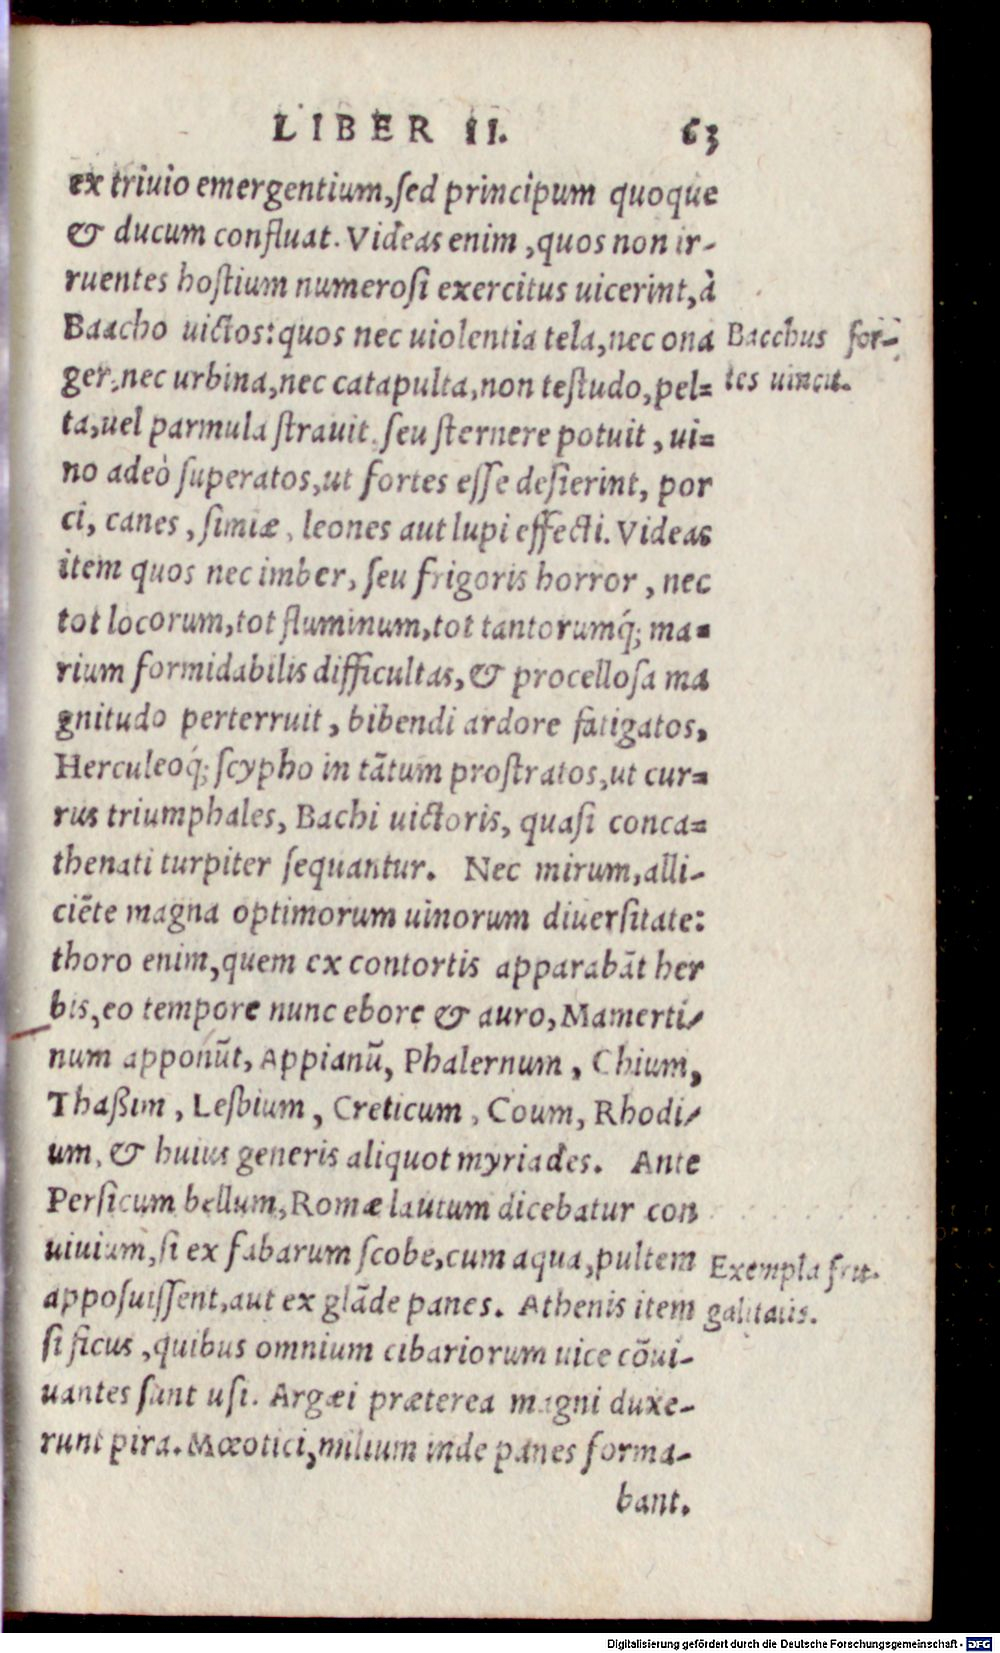 LIBER II. 63
ex triuio emergentium, ſed principum quoque
& ducum confluat. Videas enim, quos non ir-
ruentes hoſtium numeroſi exercitus uicerint, à
Baacho uictos: quos nec uiolentia tela, nec ona
ger, nec urbina, nec catapulta, non teſtudo, pel=
ta, uel parmula ſtrauit, ſeu ſternere potuit, ui=
no adeò ſuperatos, ut fortes eſſe deſierint, por
ci, canes, ſimiæ, leones aut lupi effecti. Videas
item quos nec imber, ſeu frigoris horror, nec
tot locorum, tot fluminum, tot tantorumq́; ma=
rium formidabilis difficultas, & procelloſa ma
gnitudo perterruit, bibendi ardore fatigatos,
Herculeoq́; ſcypho in tātum proſtratos, ut cur=
rus triumphales, Bachi uictoris, quaſi conca=
thenati turpiter ſequantur. Nec mirum, alli-
ciēte magna optimorum uinorum diuerſitate:
thoro enim, quem ex contortis apparabāt her
bis, eo tempore nunc ebore & auro, Mamerti-
num apponūt, Appianū, Phalernum, Chium,
Thaßum, Leſbium, Creticum, Coum, Rhodi-
um, & huius generis aliquot myriades. Ante
Perſicum bellum, Romæ lautum dicebatur con
uiuium, ſi ex fabarum ſcobe, cum aqua, pultem
appoſuiſſent, aut ex glāde panes. Athenis item
ſi ficus, quibus omnium cibariorum uice cōui-
uantes ſunt uſi. Argæi præterea magni duxe-
runt pira. Mœotici, milium inde panes forma-
bant.
Bacchus for-
tes uincit.
Exempla fru-
galitatis.
Digitalisierung gefördert durch die Deutsche Forschungsgemeinschaft - DFG